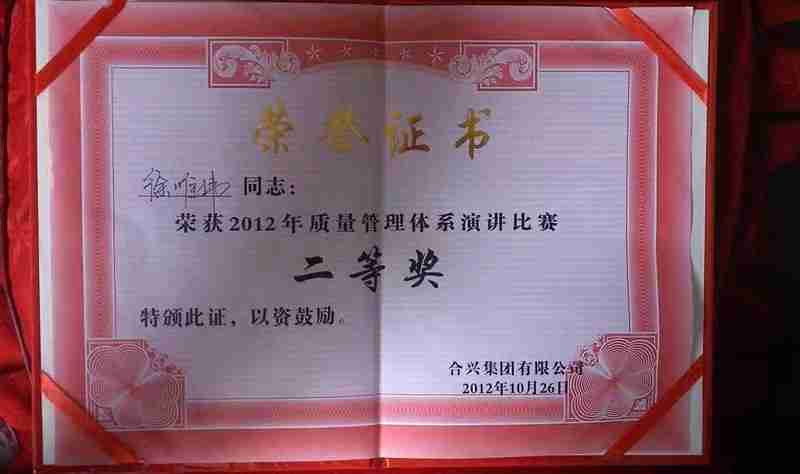 荣誉证书
徐 同志：
荣获2012年质量管理体系演讲比赛
二等奖
特颁此证，以资鼓励。
合兴集团有限公司
2012年10月26日